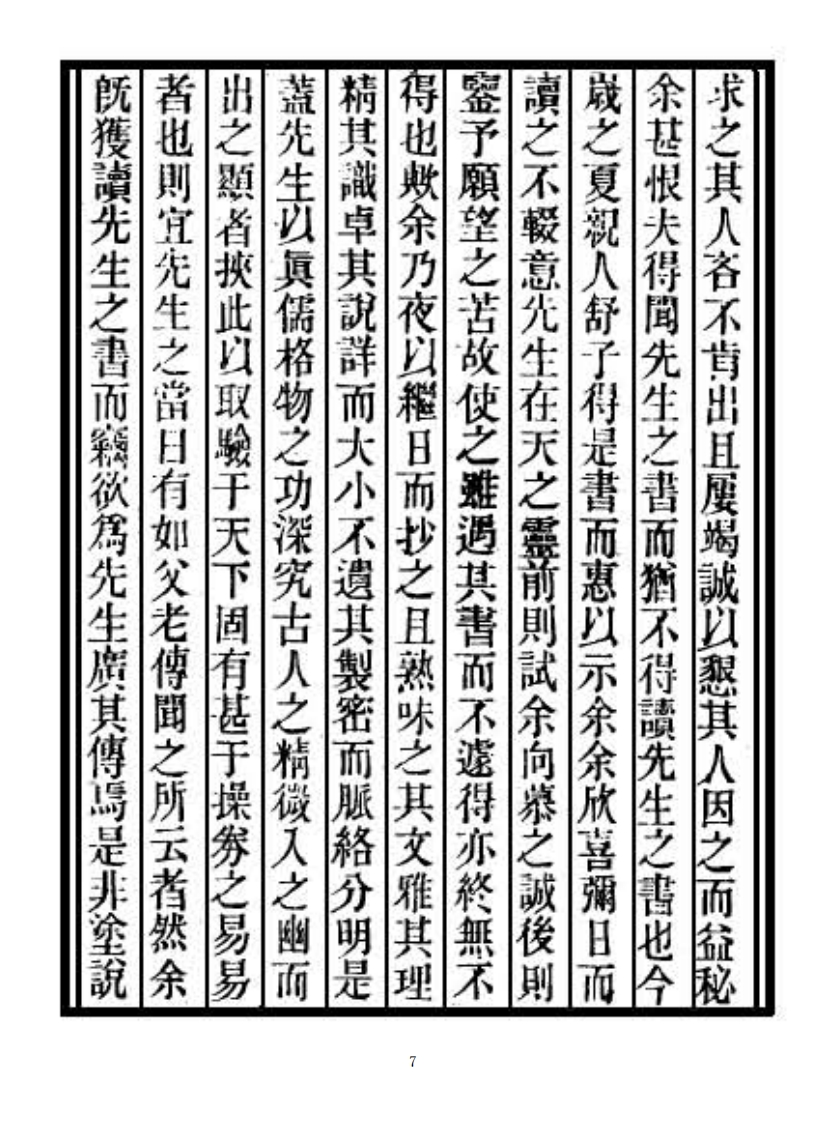 求之其人吝不肯出且屢竭誠以懇其人因之而益秘
余甚恨夫得聞先生之書而猶不得讀先生之書也今
歲之夏親人舒子得是書而惠以示余余欣喜彌日而
讀之不輟意先生在天之靈前則試余向慕之誠後則
鑒予願望之苦故使之雖遇其書而不遽得亦終無不
得也歟余乃夜以繼日而抄之且熟味之其文雅其理
精其識卓其說詳而大小不遺其製密而脈絡分明是
葢先生以眞儒格物之功深究古人之精微入之幽而
出之顯者挾此以取驗于天下固有甚于操券之易易
者也則宜先生之當日有如父老傳聞之所云者然余
旣獲讀先生之書而竊欲爲先生廣其傳焉是非塗說
7